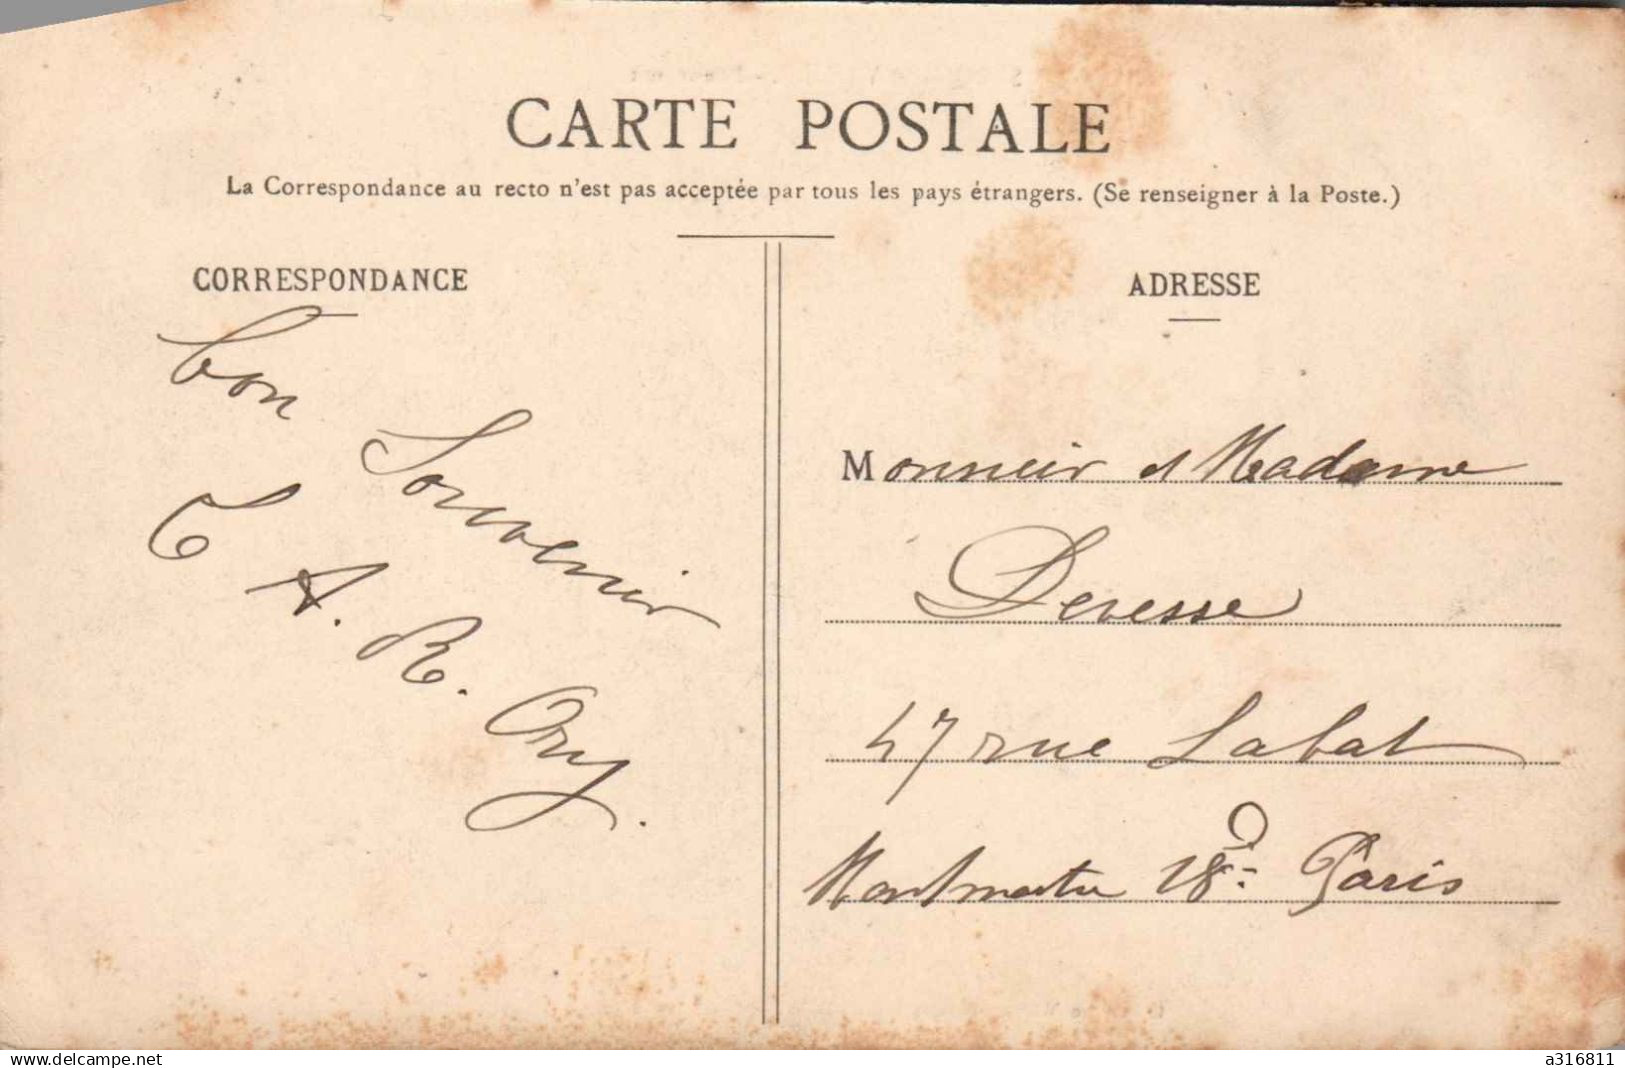 CARTE POSTALE
La Correspondance au recto n'est pas acceptée par tous les pays étrangers. (Se renseigner à la Poste.)
CORRESPONDANCE
bon
Souvenir
A. R. Ory.
ADRESSE
Monsieur et Madame
Devesse
47 rue Labat
Montmartre 18e Paris
www.delcampe.net
a316811